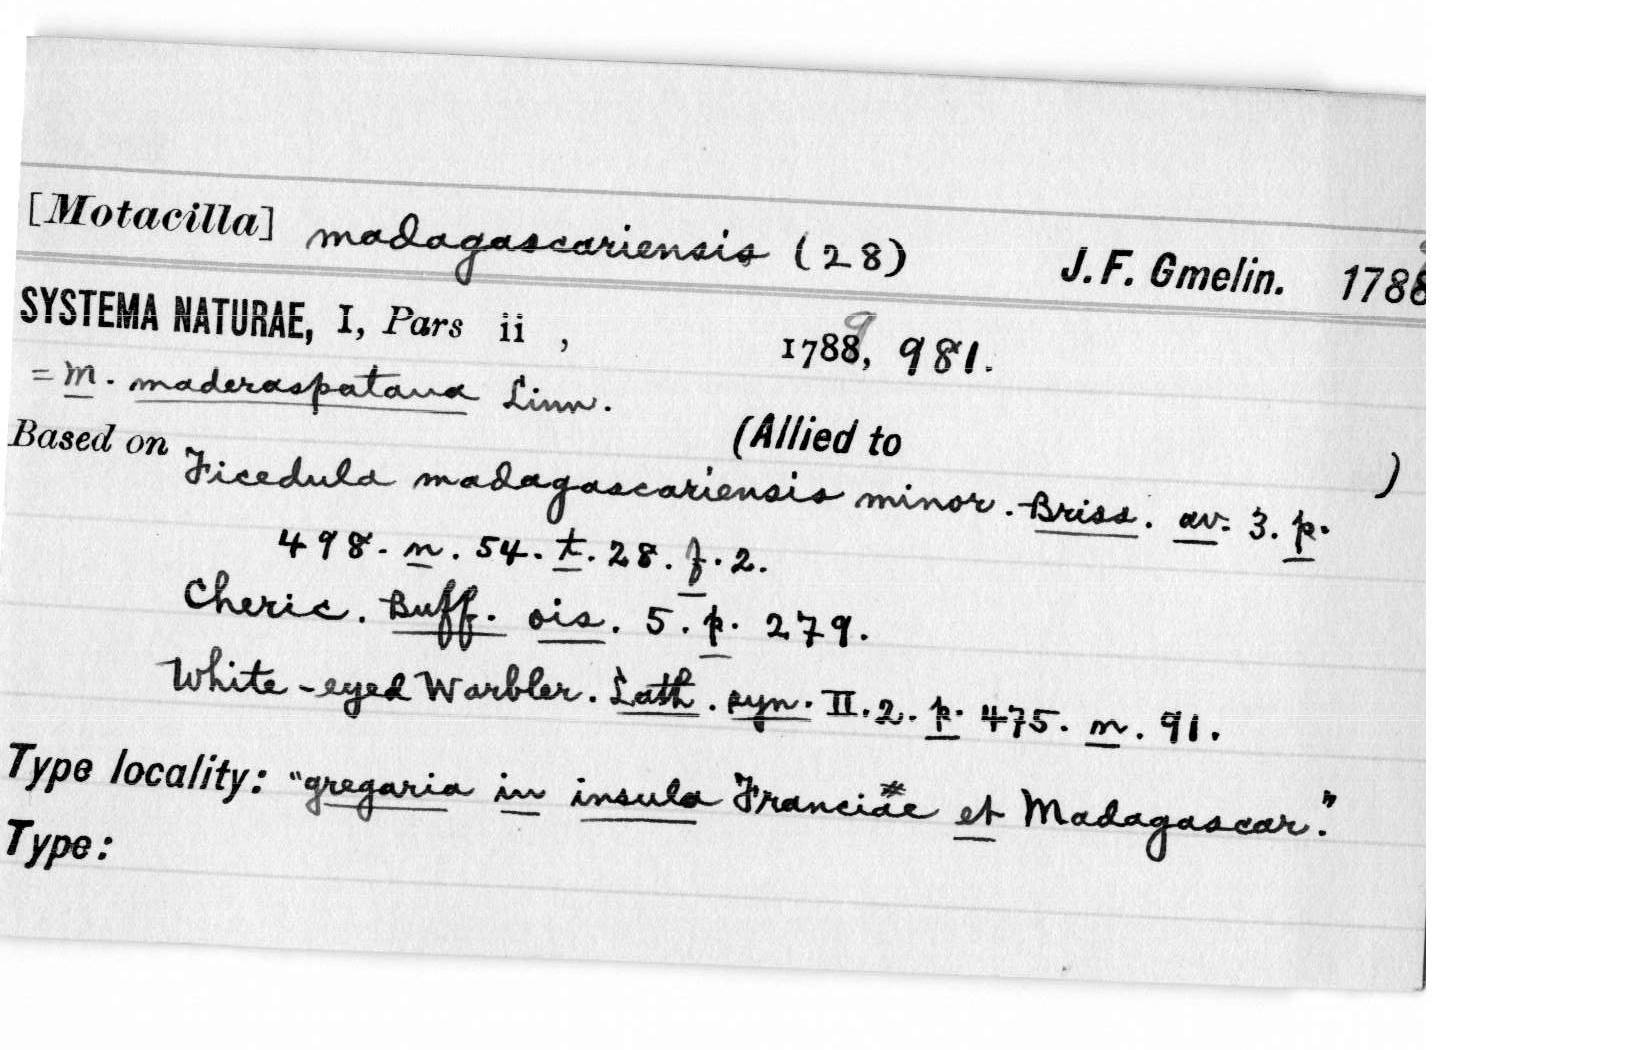 [Motacilla] madagascariensis (28) J. F. Gmelin. 1788
SYSTEMA NATURAE, I, Pars ii , 1788, 9 981.
= M. maderaspatana Linn.
(Allied to )
Based on Ficedula madagascariensis minor. Briss. av. 3. p.
498. n. 54. t. 28. f. 2.
Cheric. Buff. ois. 5. p. 279.
White-eyed Warbler. Lath. syn. II. 2. p. 475. n. 91.
Type locality: "gregaria in insula Franciae et Madagascar."
Type: